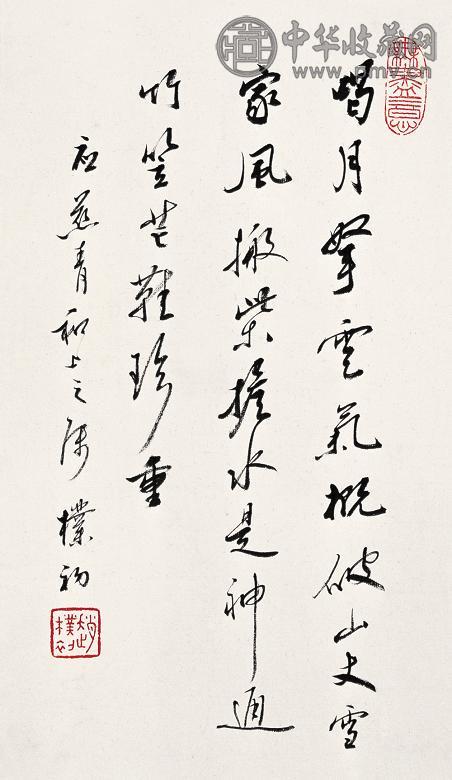 中华收藏网
www.pmv.cn
無盡意
喝月拏雲氣概破山丈雪
家風搬柴擔水是神通
竹笠芒鞋珍重
应慈青和上之属 樸初
趙樸初